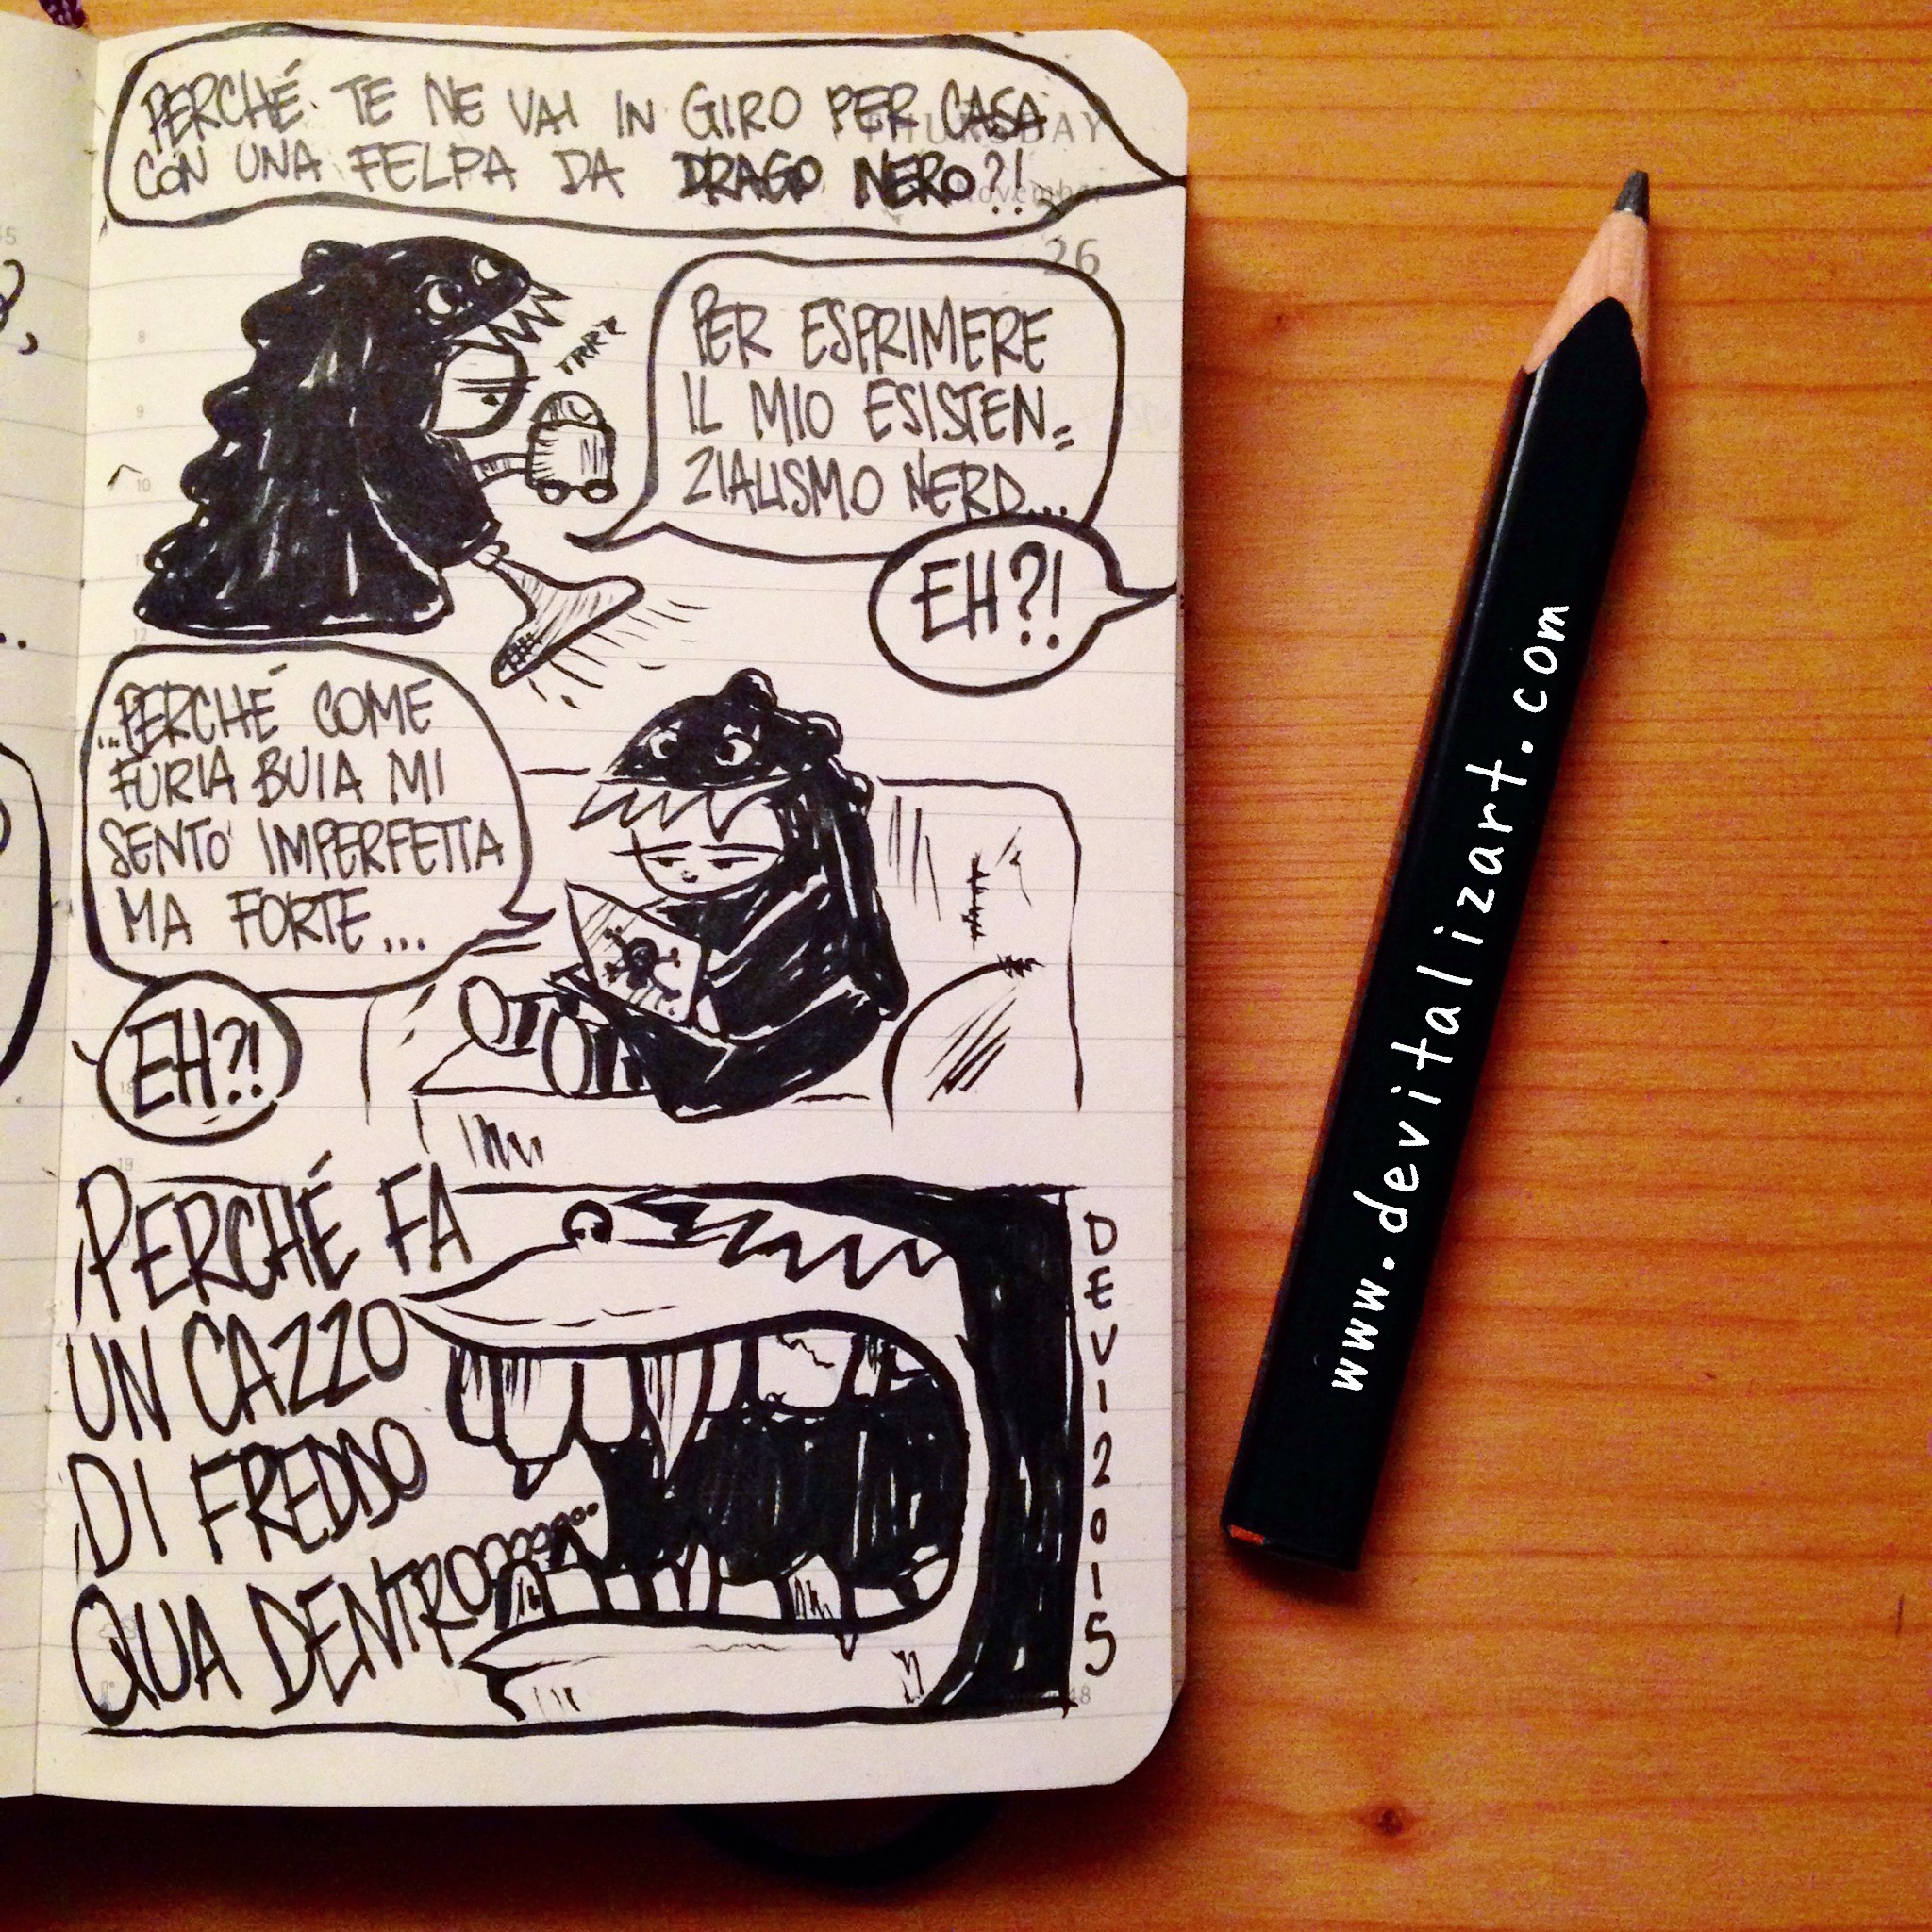 PERCHÉ TE NE VAI IN GIRO PER CASA
CON UNA FELPA DA DRAGO NERO?!
THURSDAY
November
26
PER ESPRIMERE
IL MIO ESISTEN=
ZIALISMO NERD...
EH?!
8
9
10
11
12
...PERCHÉ COME
FURIA BUIA MI
SENTO IMPERFETTA
MA FORTE...
EH?!
18
19
PERCHÉ FA
UN CAZZO
DI FREDDO
QUA DENTROOOOOOOO
DEVI2015
48
www.devitalizart.com